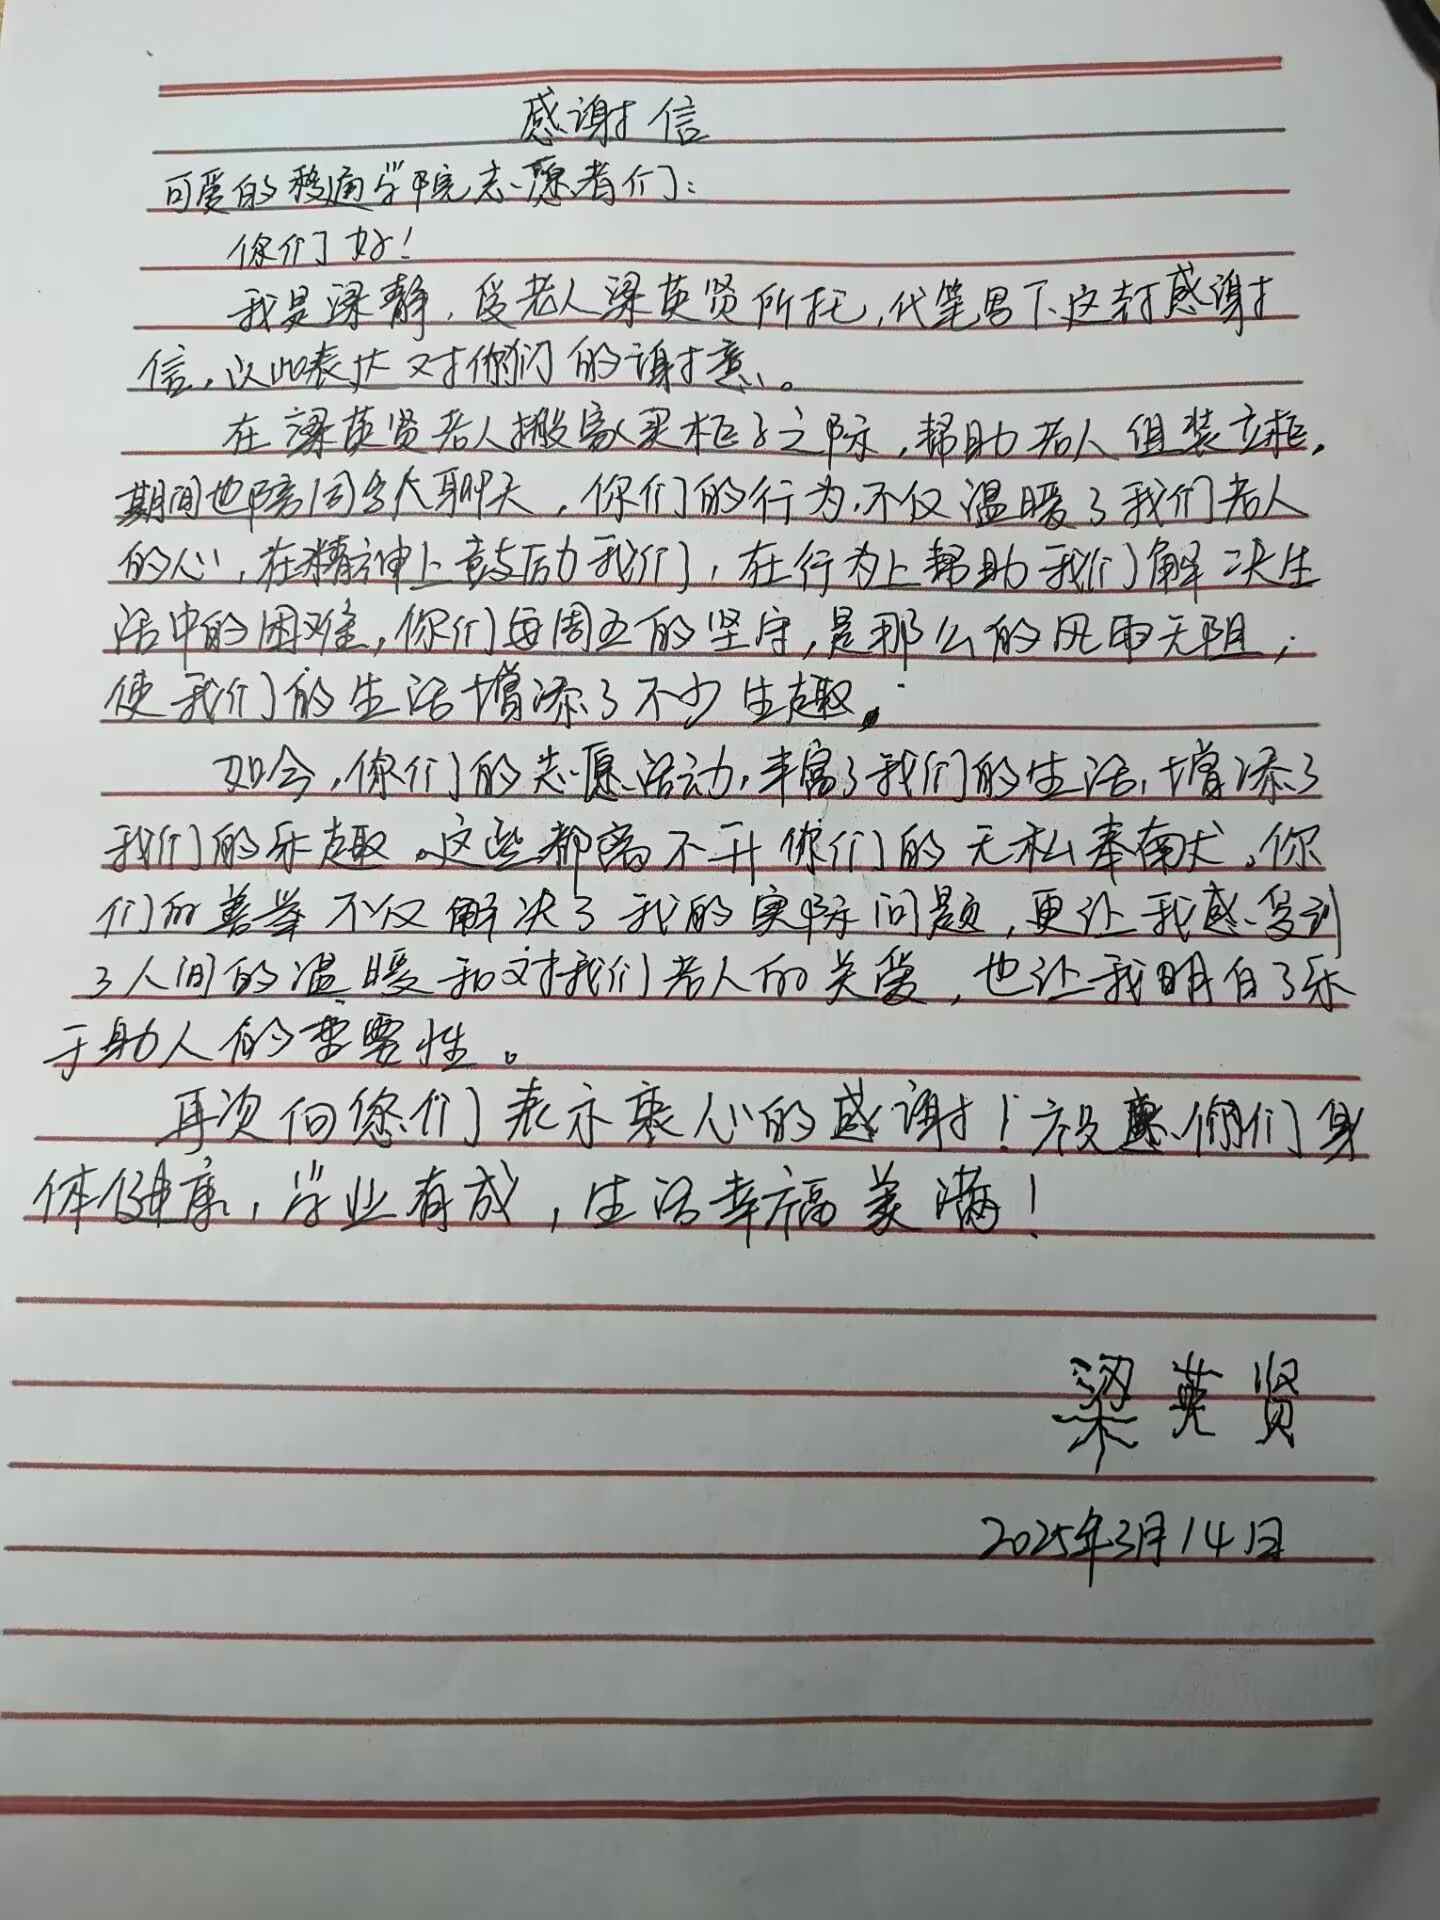 感谢信
可爱的移通学院志愿者们：
你们好！
我是梁静，受老人梁英贤所托，代笔写下这封感谢
信，以此表达对你们的谢意。
在梁英贤老人搬家买柜子之际，帮助老人组装立柜，
期间也陪同多大聊天，你们的行为，不仅温暖了我们老人
的心，在精神上鼓励我们，在行为上帮助我们解决生
活中的困难，你们每周五的坚守，是那么的风雨无阻，
使我们的生活增添了不少生趣。
如今，你们的志愿活动，丰富了我们的生活，增添了
我们的乐趣。这些都离不开你们的无私奉献。你
们的善举不仅解决了我的实际问题，更让我感受到
了人间的温暖和对我们老人的关爱，也让我明白了乐
于助人的重要性。
再次向您们表示衷心的感谢！祝愿你们身
体健康，学业有成，生活幸福美满！
梁英贤
2025年3月14日